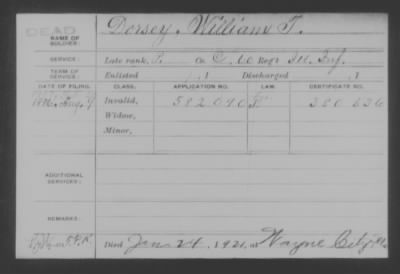 DEAD
NAME OF SOLDIER:
Dorsey, William T.
SERVICE:
Late rank, P. Co. C, 60 Reg't Ill. Inf.
TERM OF SERVICE:
Enlisted , 1 Discharged , 1
DATE OF FILING. CLASS. APPLICATION NO. LAW. CERTIFICATE NO.
1886, Aug. 9 Invalid, 582040 380,636
Widow,
Minor,
ADDITIONAL SERVICES:
REMARKS:
Died Jan 24, 1921, at Wayne City, Ill.